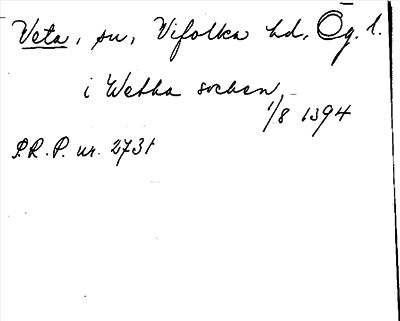 Veta, sn, Vifolka hd, Ög. l.
i Wetha sochen
1/8 1394
S.R.P. nr. 2731